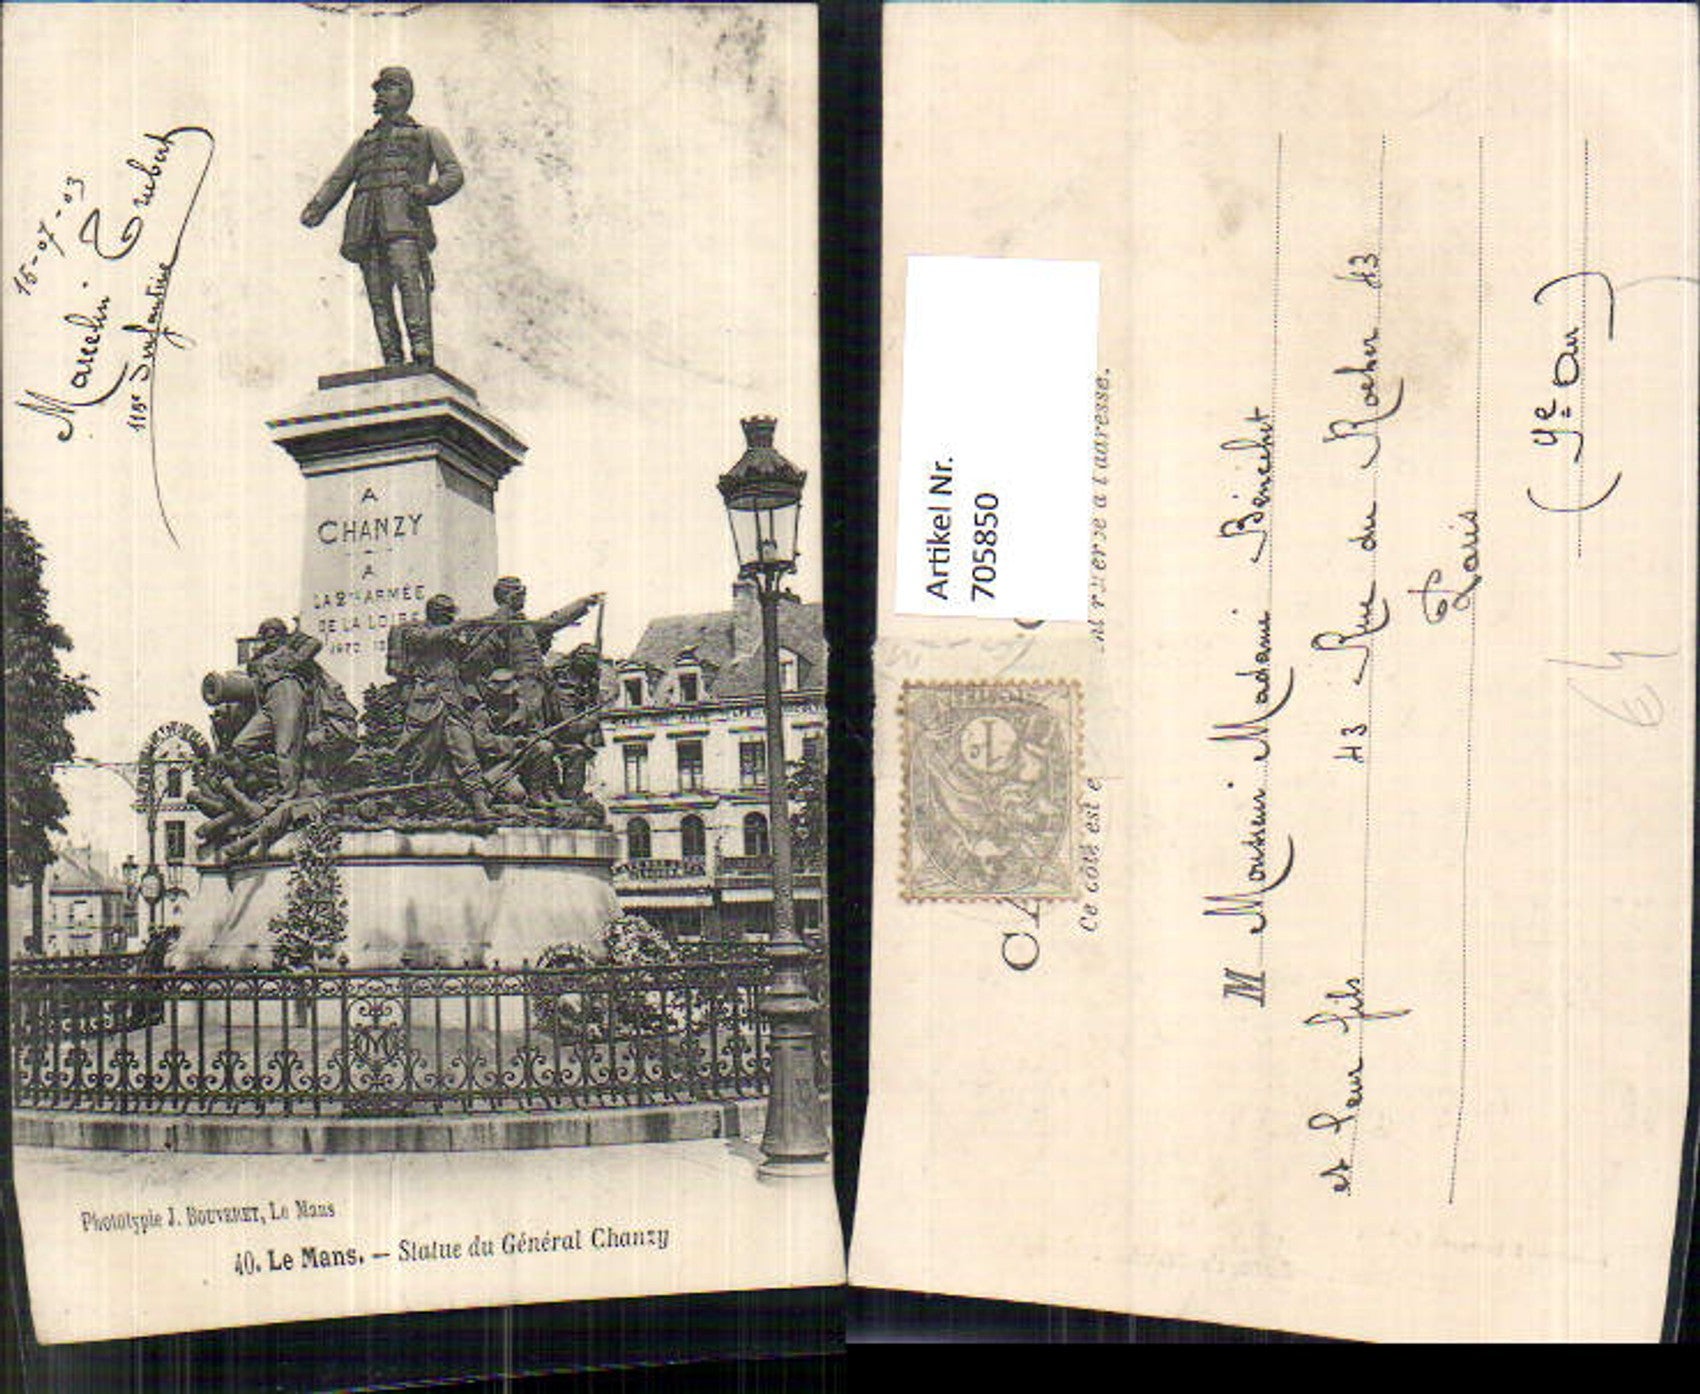 15-07-03
Marcelin Trubert
115e Infanterie
A
CHANZY
A
LA 2me ARMÉE
DE LA LOIRE
1870
Phototypie J. BOUVERET, Le Mans
40. Le Mans. — Statue du Général Chanzy
Artikel Nr.
705850
CA
Ce côté est e
à l'adresse.
1c
M Monsieur Madame Bénichet
et leur fils 43 Rue du Rocher 43
Paris